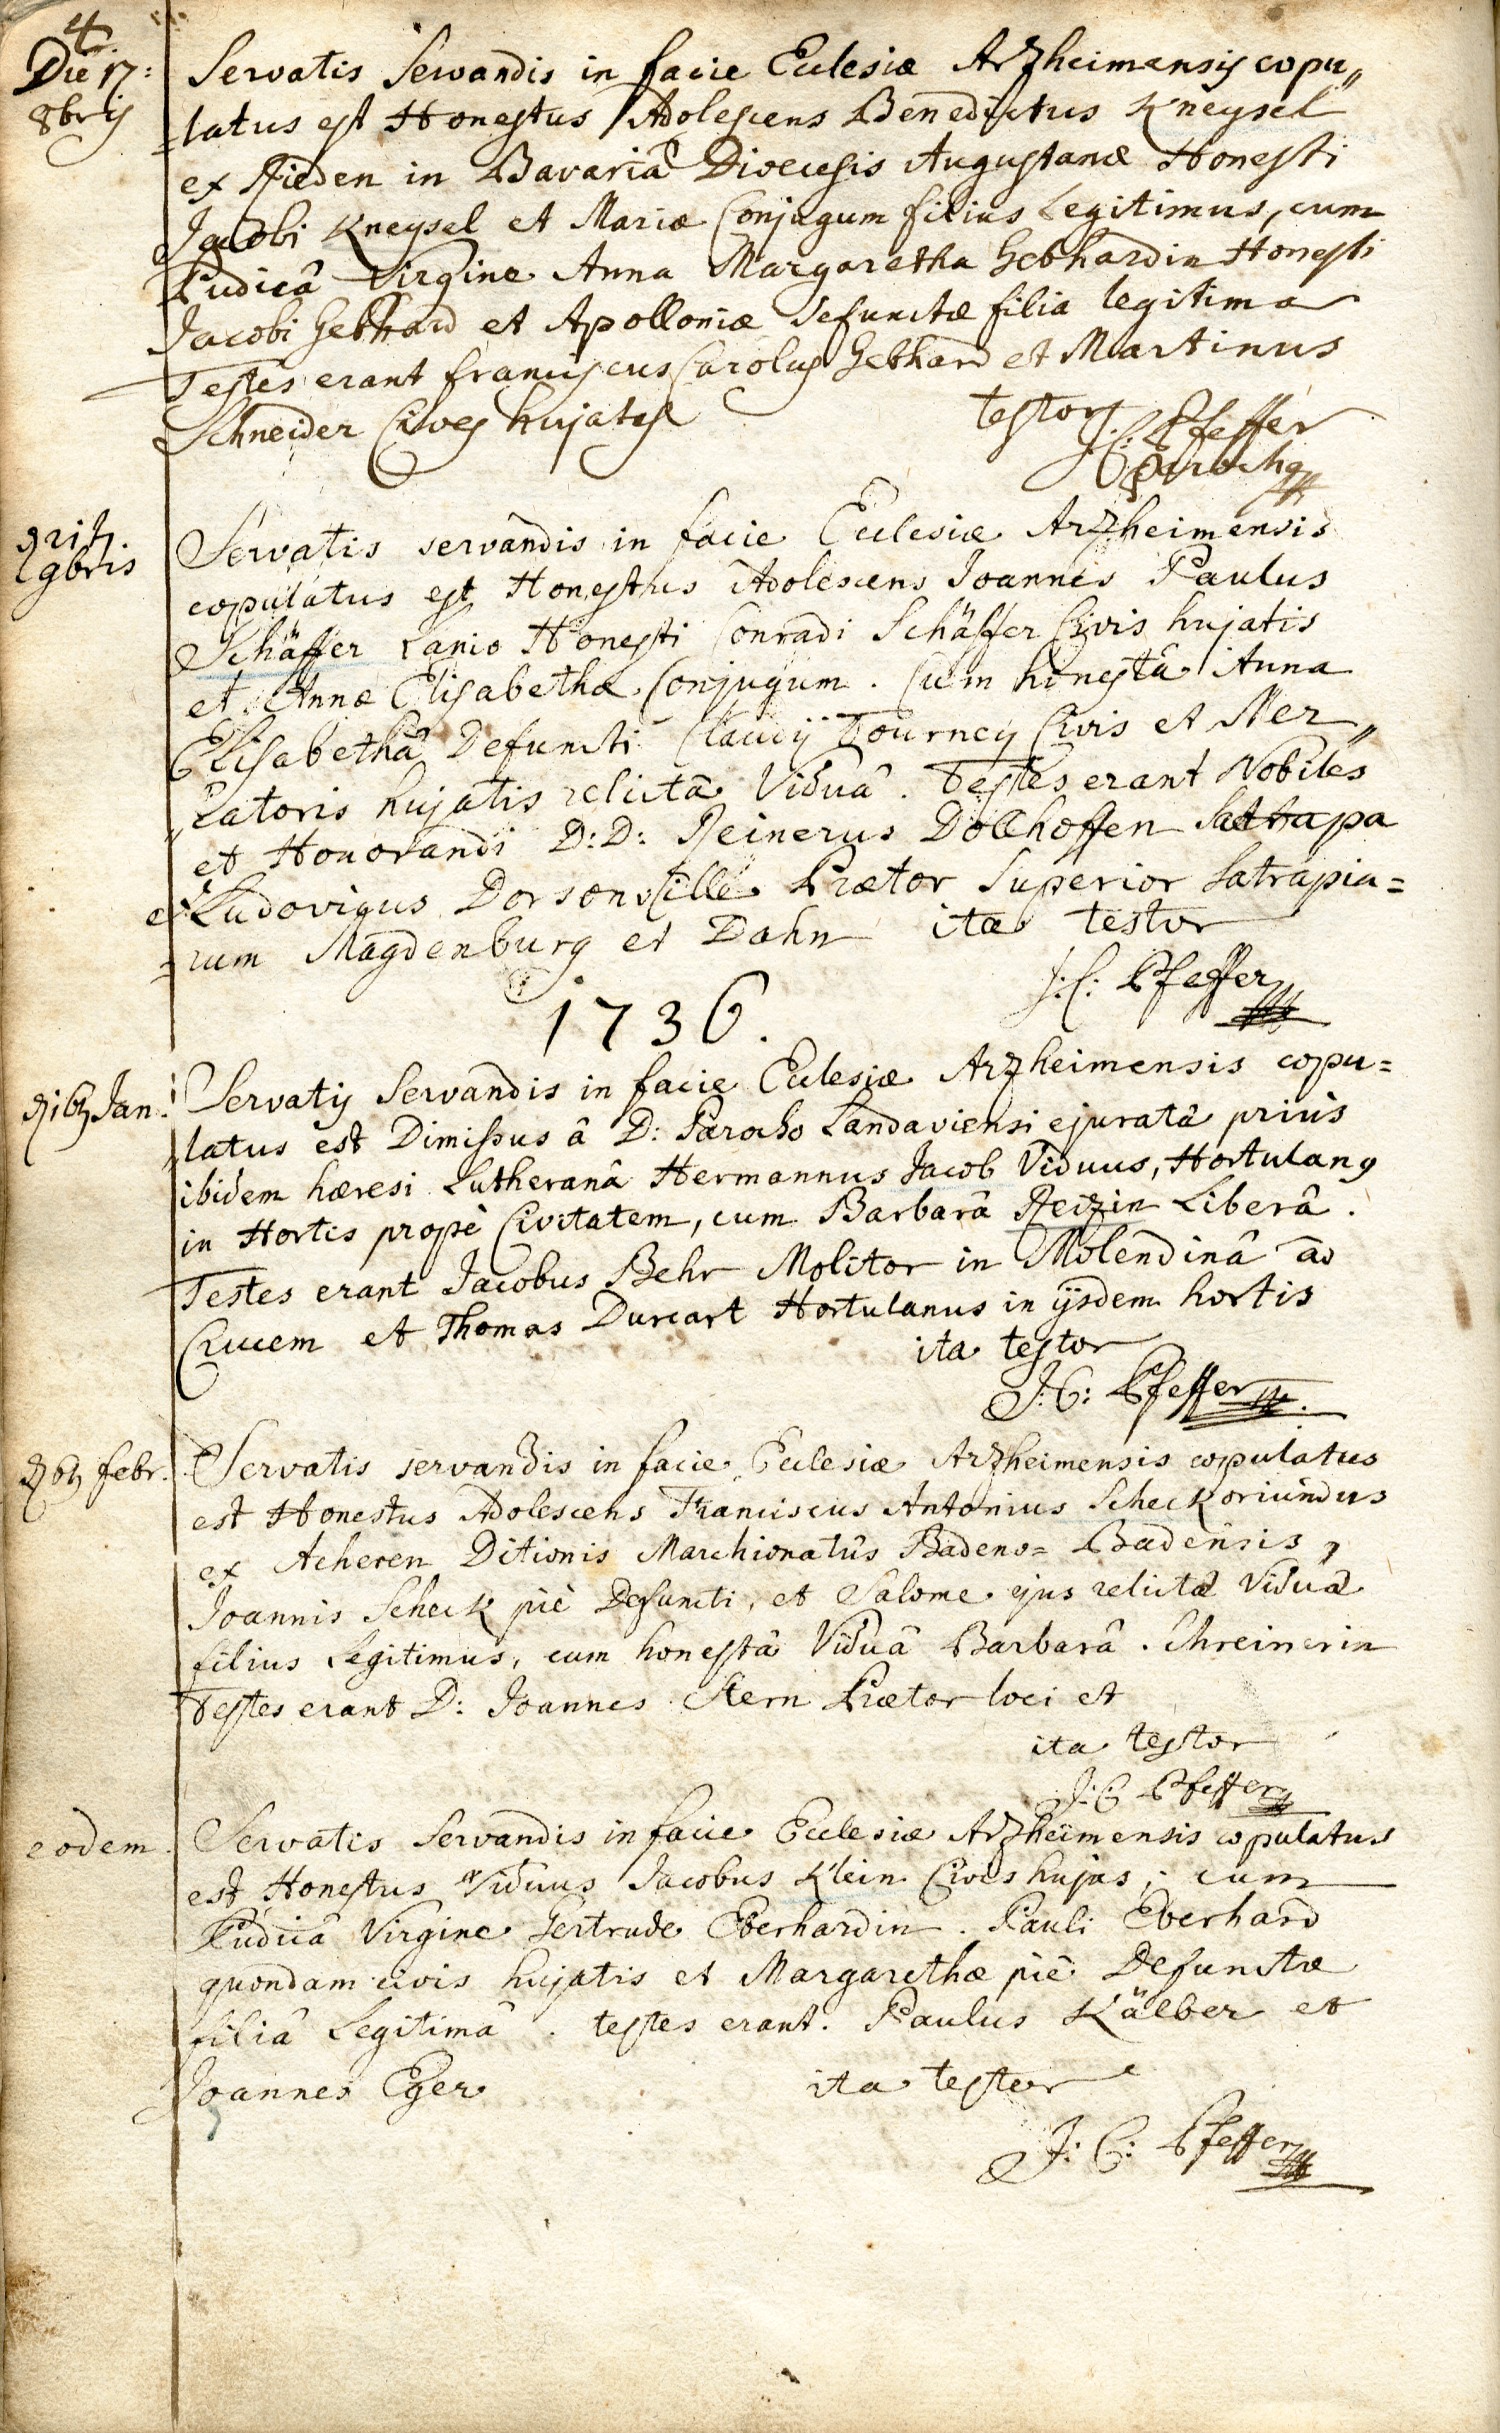 4
Die 17:
8bris
Servatis Servandis in facie Eclesiæ Arzheimensis copu„
latus est Honestus Adolescens Benedictus Kneysel
ex Rieden in Bavariâ Diœcesis Augustanæ Honesti
Jacobi Kneysel et Mariæ Conjugum filius Legitimus, cum
Pudicâ Virgine Anna Margaretha Gebhardin Honesti
Jacobi Gebhard et Apolloniæ defunctæ filia legitima
Testes erant franciscus Carolus Gebhard et Martinus
Schneider Cives hujates
testor J.C: Pfeffer
Parochq
21
9bris
Servatis servandis in facie Eclesiæ Arzheimensis
copulatus est Honestus Adolescens Joannes Paulus
Schäffer Lanio Honesti Conradi Schäffer Civis hujatis
et Annæ Elisabethæ Conjugum. Cum honestâ Anna
Elisabethâ Defuncti Claudij Tourney Civis et Mer„
„catoris hujatis relictâ Viduâ. Testes erant Nobiles
et Honorandi D:D: Reinerus Dollhoffen Satrapa
et Ludovigus Dorsonville Prætor Superior Satrapia=
=rum Magdenburg et Dahn ita testor
J:C: Pfeffer
1736.
16 Jan:
Servatis Servandis in facie Eclesiæ Arzheimensis copu=
„latus est Dimissus â D: Parocho Landaviensi ejuratâ priùs
ibidem hæresi Lutheranâ Hermannus Jacob Viduus, Hortulang
in Hortis propè Civitatem, cum Barbarâ Reizin Liberâ.
Testes erant Jacobus Behr Molitor in Molendinâ ad
Crucem et Thomas Durcart Hortulanus in ijsdem hortis
ita testor
J:C: Pfeffer
6 febr.
Servatis servandis in facie Eclesiæ Arzheimensis copulatus
est Honestus Adolescens Franciscus Antonius Scheck oriundus
ex Acheren Ditionis Marchionatûs Badeno= Badensis,
Joannis Scheck piè Defuncti, et Salome ejus relictæ Viduæ
filius Legitimus, cum honestâ Viduâ Barbarâ Schreinerin
Testes erant D: Joannes Stern Prætor loci et
ita testor
J:C Pfeffer
eodem.
Servatis Servandis in facie Eclesiæ Arzheimensis copulatus
est Honestus Viduus Jacobus Klein Cives hujas, cum
Pudicâ Virgine Gertrude Eberhardin. Pauli Eberhard
quondam civis hujatis et Margarethæ piè Defunctæ
filiâ Legitimâ. testes erant. Paulus Kälber et
Joannes Eger
ita testor
J: C: Pfeffer